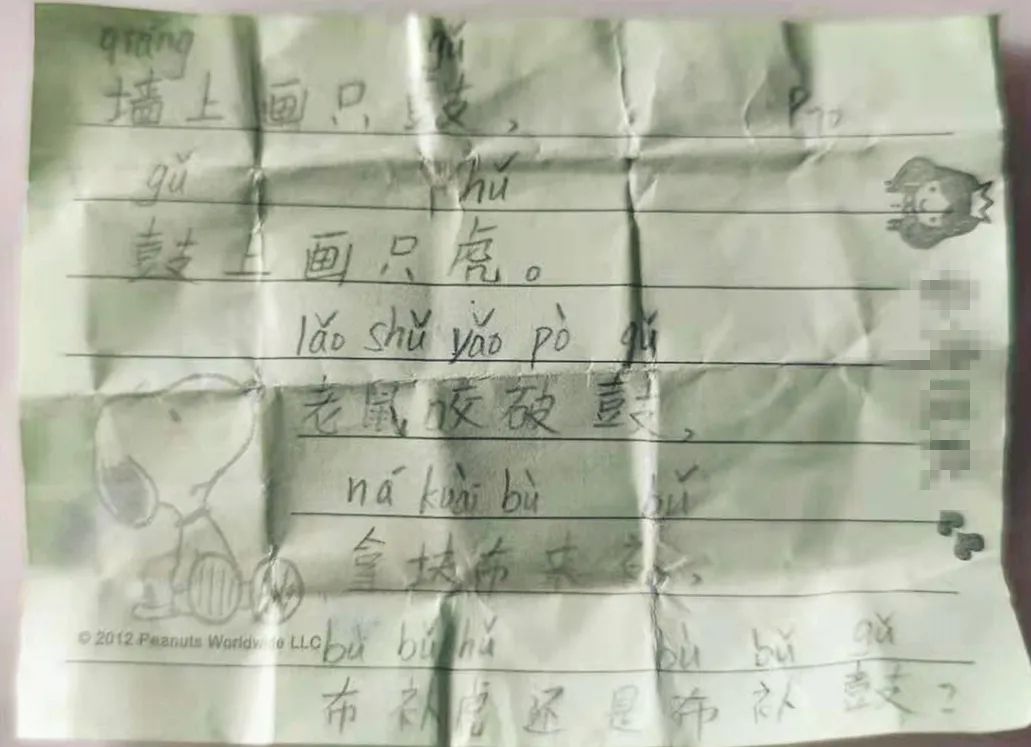 qiáng gǔ
墙上画只鼓，
P70
gǔ hǔ
鼓上画只虎。
lǎo shǔ yǎo pò gǔ
老鼠咬破鼓，
ná kuài bù bǔ
拿块布来补，
© 2012 Peanuts Worldwide LLC
bù bǔ hǔ bù bǔ gǔ
布补虎还是布补鼓？